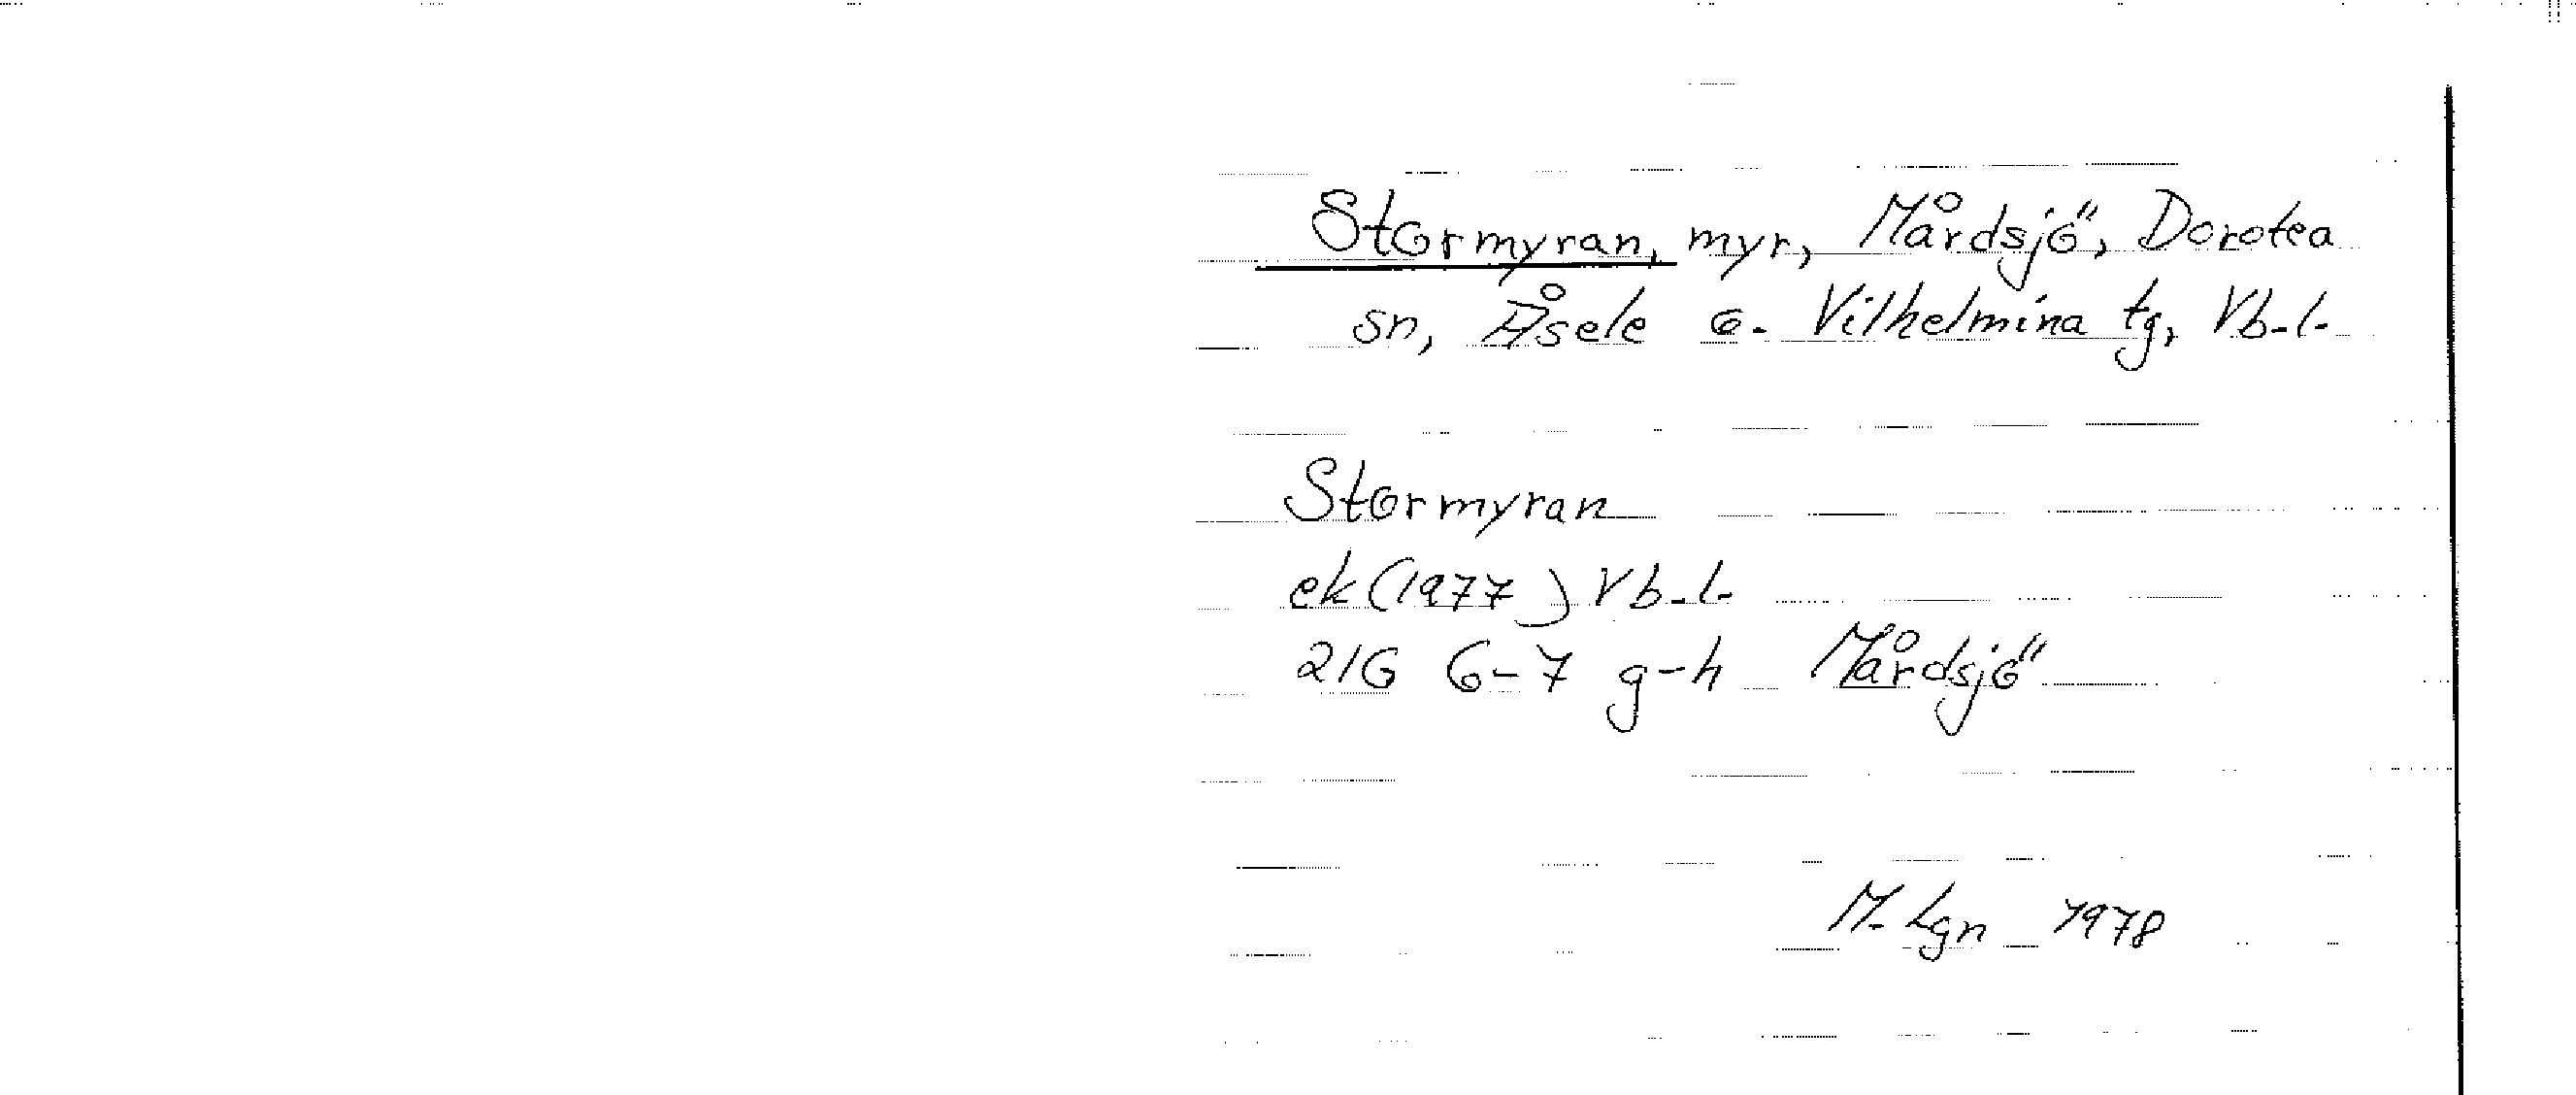 Stormyran, myr, Mårdsjö, Dorotea
sn, Åsele o. Vilhelmina tg, Vb.l.
Stormyran
ek (1977) Vb.l.
21G 6-7 g-h Mårdsjö
M. Lgn 1978